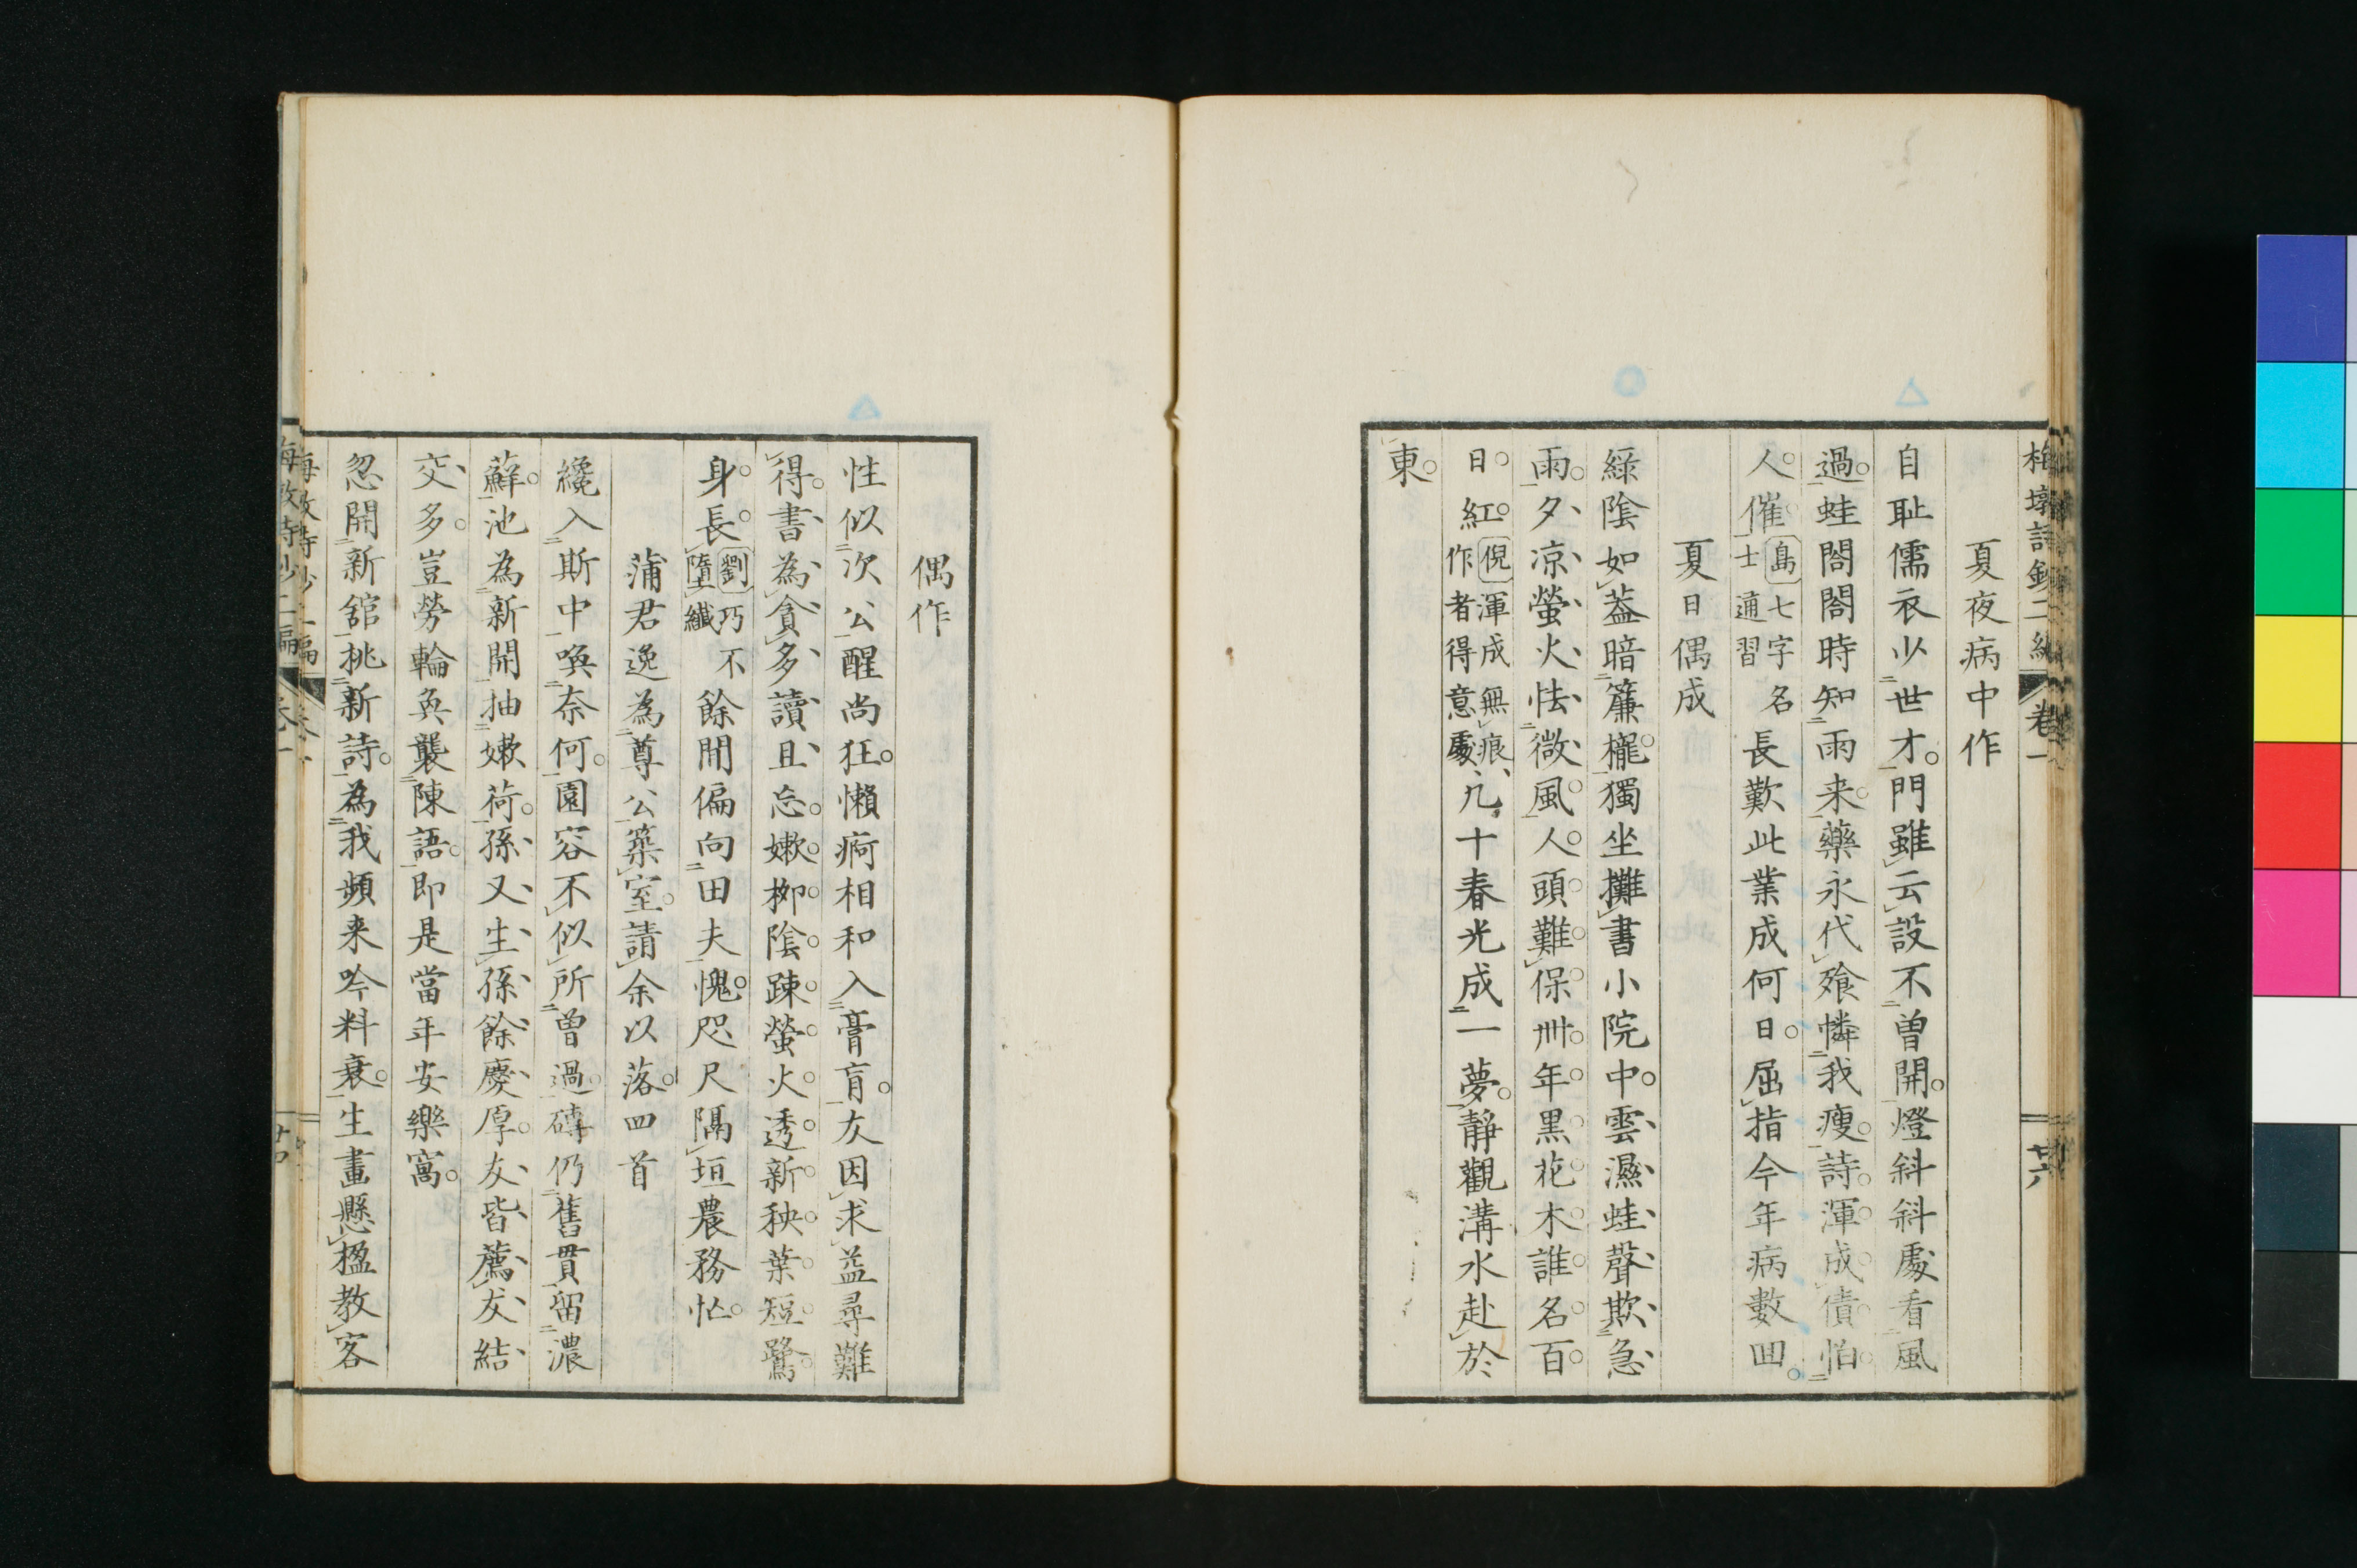 梅墩詩鈔二編 卷一 廿六
夏夜病中作
自耻儒衣少世才門雖云設不曽開燈斜斜處看風
過蛙閤閤時知雨来藥永代飱憐我痩詩渾成債怕
人催 島七字名士通習 長歎此業成何日屈指今年病數囬
夏日偶成
綠陰如葢暗簾櫳獨坐攤書小院中雲濕蛙聲欺急
雨夕凉螢火怯微風人頭難保卌年黒花木誰名百
日紅 倪渾成無痕作者得意處 九十春光成一夢靜觀溝水赴於
東
偶作
性似次公醒尚狂懶痾相和入膏肓友因求益尋難
得書為貪多讀且忘嫩柳陰踈螢火透新秧葉短鷺
身長 劉巧不墮纖 餘閒偏向田夫愧咫尺隔垣農務忙
蒲君逸為尊公築室請余以落四首
纔入斯中喚奈何園容不似所曽過磚仍舊貫留濃
蘚池為新開抽嫩荷孫又生孫餘慶厚友皆薦友結
交多豈勞輪奐襲陳語即是當年安樂窩
忽開新舘挑新詩為我頻来吟料衰生畫懸楹教客